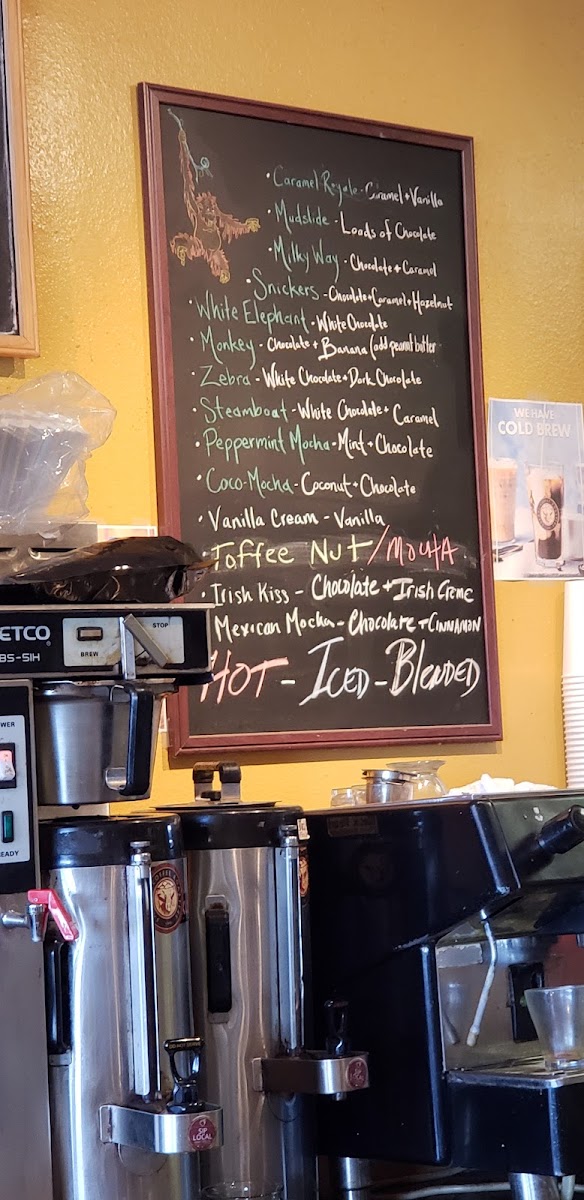 • Caramel Royale - Caramel + Vanilla
• Mudslide - Loads of Chocolate
• Milky Way - Chocolate + Caramel
• Snickers - Chocolate + Caramel + Hazelnut
• White Elephant - White Chocolate
• Monkey - Chocolate + Banana (add peanut butter
• Zebra - White Chocolate + Dark Chocolate
• Steamboat - White Chocolate + Caramel
• Peppermint Mocha - Mint + Chocolate
• Coco-Mocha - Coconut + Chocolate
• Vanilla Cream - Vanilla
• Toffee Nut / Mocha
• Irish Kiss - Chocolate + Irish Creme
Mexican Mocha - Chocolate + Cinnamon
Hot - Iced - Blended
WE HAVE
COLD BREW
ETCO
BS-51H
BREW
STOP
WER
EADY
SIP
LOCAL